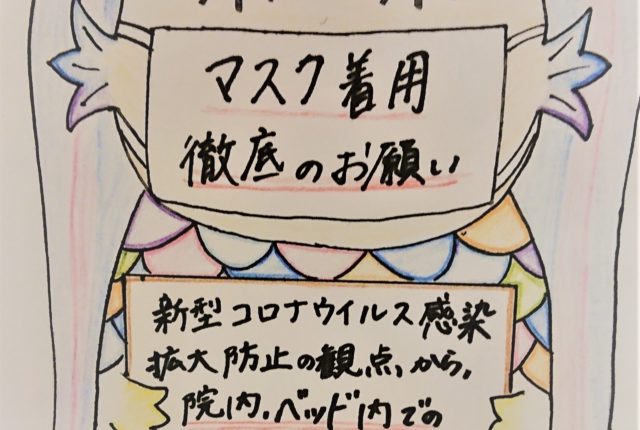 マスク着用
徹底のお願い
新型コロナウイルス感染
拡大防止の観点、から、
院内、ベッド内での